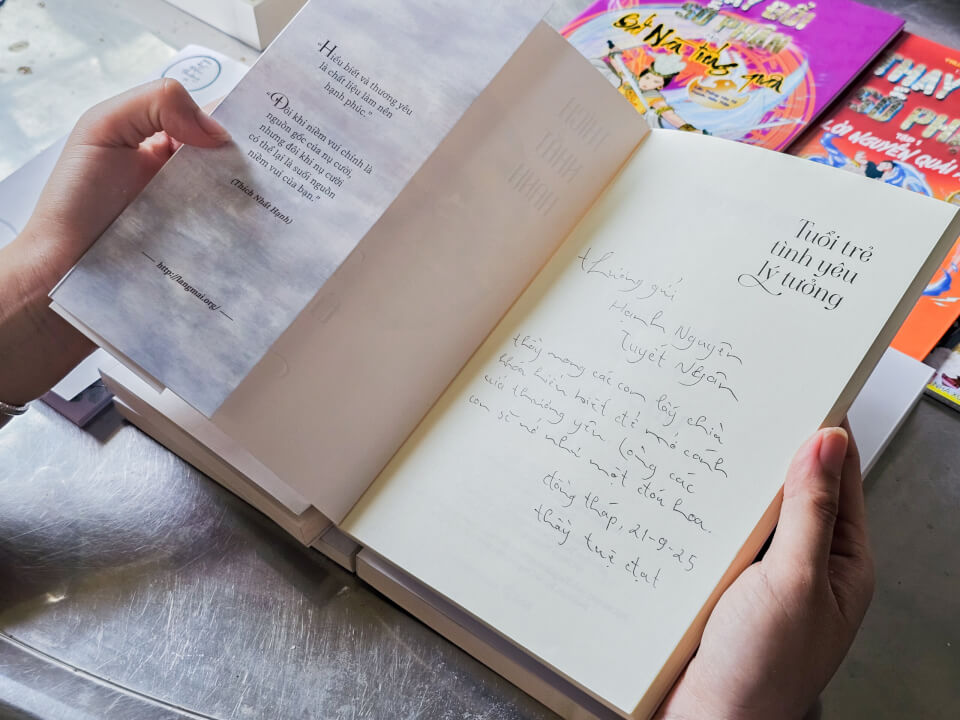 “Hiểu biết và thương yêu
là chất liệu làm nên
hạnh phúc.”
“Đôi khi niềm vui chính là
nguồn gốc của nụ cười,
nhưng đôi khi nụ cười
có thể lại là suối nguồn
niềm vui của bạn.”
(Thích Nhất Hạnh)
http://langmai.org/
Tuổi trẻ
tình yêu
lý tưởng
thương gửi
Hạnh Nguyên
Tuyết Ngân
thầy mong các con lấy chìa
khóa hiểu biết để mở cánh
cửa thương yêu. Lòng các
con sẽ nở như một đoá hoa.
đồng tháp, 21-9-25
thầy tuệ đạt
THAY ĐỔI
SỐ PHẬN
Bát Nữa tính qua
THAY
SỐ PH
LỜI NGUYỀN QUÁI